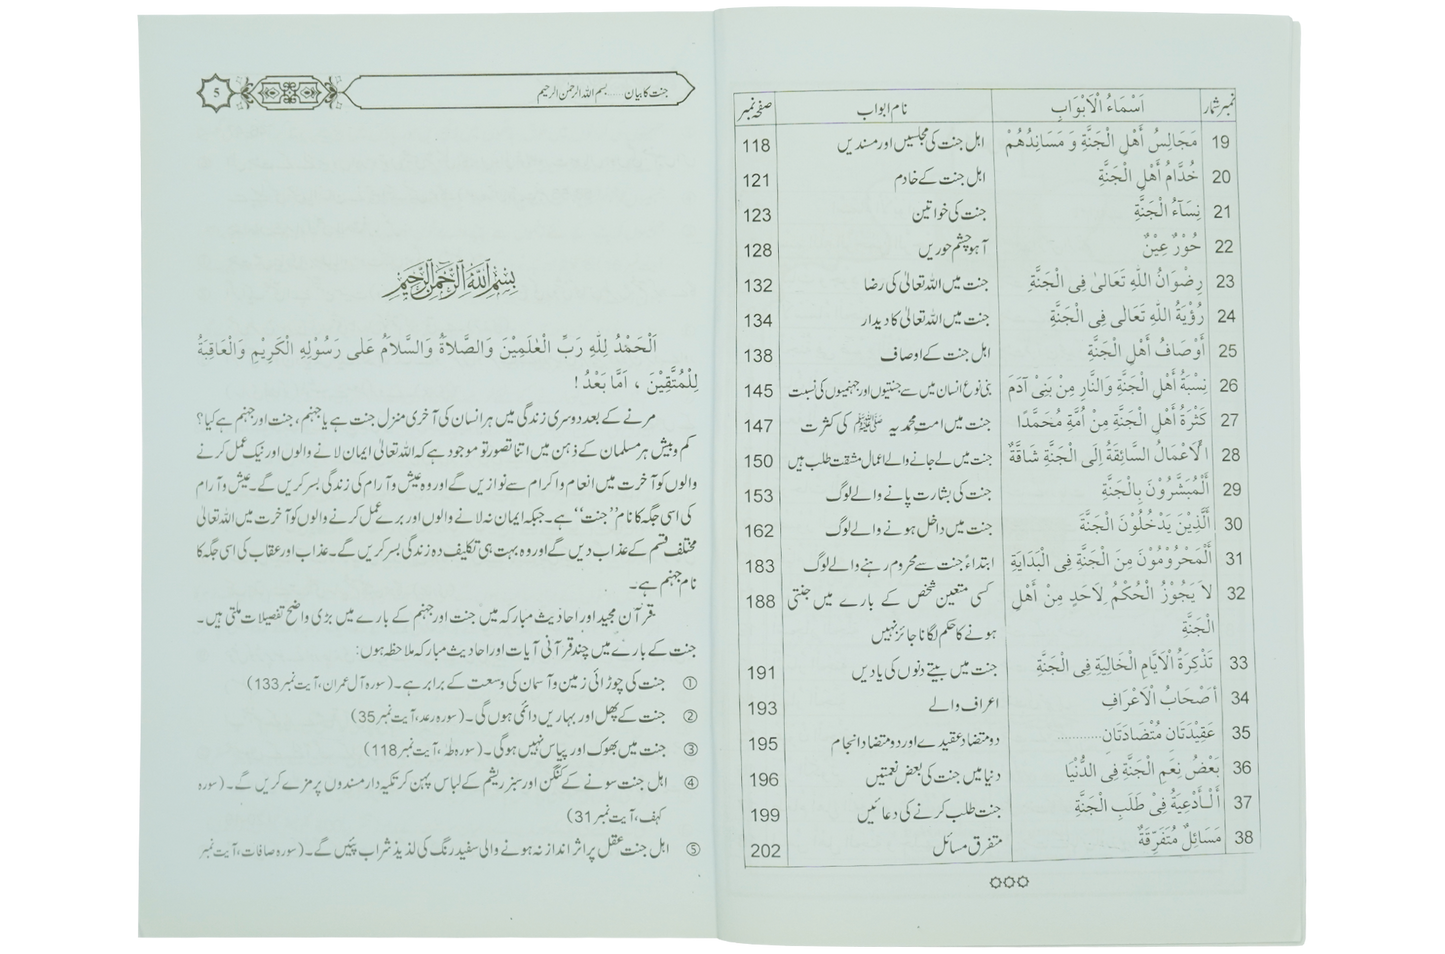 نمبر شمار اَسْمَاءُ الْاَبْوَابِ نام ابواب صفحہ نمبر
19 مَجَالِسُ أَهْلِ الْجَنَّةِ وَ مَسَانِدُهُمْ اہل جنت کی مجلسیں اور مسندیں 118
20 خُدَّامُ أَهْلِ الْجَنَّةِ اہل جنت کے خادم 121
21 نِسَآءُ الْجَنَّةِ جنت کی خواتین 123
22 حُوْرٌ عِيْنٌ آہو چشم حوریں 128
23 رِضْوَانُ اللهِ تَعَالىٰ فِى الْجَنَّةِ جنت میں اللہ تعالیٰ کی رضا 132
24 رُؤْيَةُ اللهِ تَعَالٰى فِى الْجَنَّةِ جنت میں اللہ تعالیٰ کا دیدار 134
25 أَوْصَافُ أَهْلِ الْجَنَّةِ اہل جنت کے اوصاف 138
26 نِسْبَةُ أَهْلِ الْجَنَّةِ وَالنَّارِ مِنْ بَنِىْ آدَمَ بنی نوع انسان میں سے جنتیوں اور جہنمیوں کی نسبت 145
27 كَثْرَةُ أَهْلِ الْجَنَّةِ مِنْ اُمَّةِ مُحَمَّدًا جنت میں امت محمدیہ ﷺ کی کثرت 147
28 الْاَعْمَالُ السَّائِقَةُ اِلَى الْجَنَّةِ شَاقَّةٌ جنت میں لے جانے والے اعمال مشقت طلب ہیں 150
29 اَلْمُبَشَّرُوْنَ بِالْجَنَّةِ جنت کی بشارت پانے والے لوگ 153
30 اَلَّذِيْنَ يَدْخُلُوْنَ الْجَنَّةَ جنت میں داخل ہونے والے لوگ 162
31 اَلْمَحْرُوْمُوْنَ مِنَ الْجَنَّةِ فِى الْبَدَايَةِ ابتداءً جنت سے محروم رہنے والے لوگ 183
32 لاَ يَجُوْزُ الْحُكْمُ لِاَحَدٍ مِنْ أَهْلِ کسی متعین شخص کے بارے میں جنتی 188
الْجَنَّةِ ہونے کا حکم لگانا جائز نہیں
33 تَذْكِرَةُ الْاَيَّامِ الْخَالِيَةِ فِى الْجَنَّةِ جنت میں بیتے دنوں کی یادیں 191
34 اَصْحَابُ الْاَعْرَافِ اعراف والے 193
35 عَقِيْدَتَانِ مُتَضَادَتَانِ............ دو متضاد عقیدے اور دو متضاد انجام 195
36 بَعْضُ نِعَمِ الْجَنَّةِ فِى الدُّنْيَا دنیا میں جنت کی بعض نعمتیں 196
37 اَلْاَدْعِيَةُ فِىْ طَلَبِ الْجَنَّةِ جنت طلب کرنے کی دعائیں 199
38 مَسَائِلٌ مُتَفَرِّقَةٌ متفرق مسائل 202
جنت کا بیان ..... بسم اللہ الرحمٰن الرحیم 5
بِسْمِ اللّٰهِ الرَّحْمٰنِ الرَّحِيْمِ
اَلْحَمْدُ لِلّٰهِ رَبِّ الْعٰلَمِيْنَ وَالصَّلاَةُ وَالسَّلاَمُ عَلى رَسُوْلِهِ الْكَرِيْمِ وَالْعَاقِبَةُ
لِلْمُتَّقِيْنَ ، اَمَّا بَعْدُ !
مرنے کے بعد دوسری زندگی میں ہر انسان کی آخری منزل جنت ہے یا جہنم، جنت اور جہنم ہے کیا؟
کم و بیش ہر مسلمان کے ذہن میں اتنا تصور تو موجود ہے کہ اللہ تعالیٰ ایمان لانے والوں اور نیک عمل کرنے
والوں کو آخرت میں انعام و اکرام سے نوازیں گے اور وہ عیش و آرام کی زندگی بسر کریں گے۔ عیش و آرام
کی اسی جگہ کا نام ’’جنت‘‘ ہے۔ جبکہ ایمان نہ لانے والوں اور برے عمل کرنے والوں کو آخرت میں اللہ تعالیٰ
مختلف قسم کے عذاب دیں گے اور وہ بہت ہی تکلیف دہ زندگی بسر کریں گے۔ عذاب اور عقاب کی اسی جگہ کا
نام جہنم ہے۔
قرآن مجید اور احادیث مبارکہ میں جنت اور جہنم کے بارے میں بڑی واضح تفصیلات ملتی ہیں۔
جنت کے بارے میں چند قرآنی آیات اور احادیث مبارکہ ملاحظہ ہوں:
① جنت کی چوڑائی زمین و آسمان کی وسعت کے برابر ہے۔ (سورہ آل عمران، آیت نمبر 133)
② جنت کے پھل اور بہاریں دائمی ہوں گی۔ (سورہ رعد، آیت نمبر 35)
③ جنت میں بھوک اور پیاس نہیں ہوگی۔ (سورہ طہٰ، آیت نمبر 118)
④ اہل جنت سونے کے کنگن اور سبز ریشم کے لباس پہن کر تکیہ دار مسندوں پر مزے کریں گے۔ (سورہ
کہف، آیت نمبر 31)
⑤ اہل جنت عقل پر اثر انداز نہ ہونے والی سفید رنگ کی لذیذ شراب پئیں گے۔ (سورہ صافات، آیت نمبر